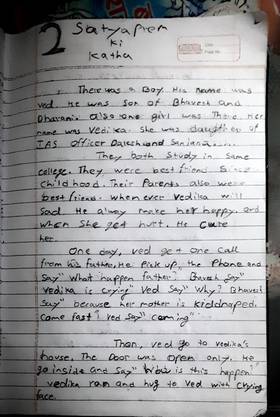 2 Satyaprem
ki
Katha
There was a Boy. His name was
ved. He was son of Bhavesh and
Dharani. also one girl was There. Her
name was Vedika. She was daughter of
IAS officer Daksh and Sanjana.....
They both Study in same
college. They were best friend Since
Childhood. Their Parents also were
best friend. when ever Vedika will
Sad He alway make her happy. and
when She get hurt. He Cure
her.
One day, ved get one Call
from his father. He Pick up the Phone and
Say" What happen father" Bavesh Say"
Vedika is Crying" Ved Say" Why? Bhavesh
Say" because her mother is kiddnaped.
Come fast! Ved Say" Coming"
Than, ved go to Vedika's
house. The Door was open only. He
go inside and Say" is this happen"
Vedika ran and hug to Ved with Crying
face.